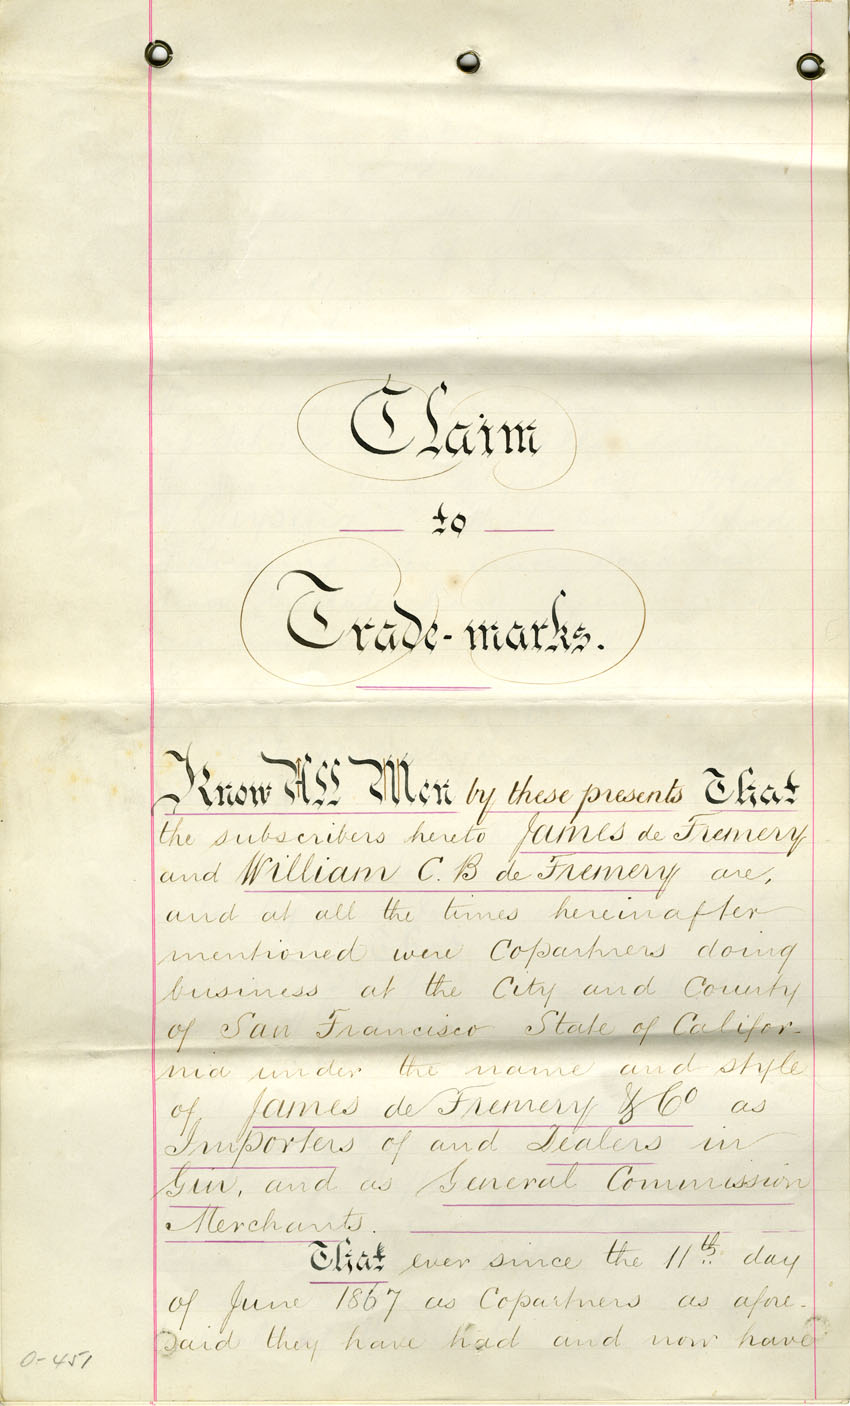 Claim
to
Trade-marks.
Know All Men by these presents That
the subscribers hereto James de Fremery
and William C. B de Fremery are,
and at all the times hereinafter
mentioned were Copartners doing
business at the City and County
of San Francisco State of Califor-
nia under the name and style
of James de Fremery & Co as
Importers of and Dealers in
Gin, and as General Commission
Merchants.
That ever since the 11th day
of June 1867 as Copartners as afore-
said they have had and now have
O-451